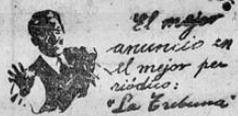 El mejor
anuncio en
el mejor per
riódico:
"La Tribuna"